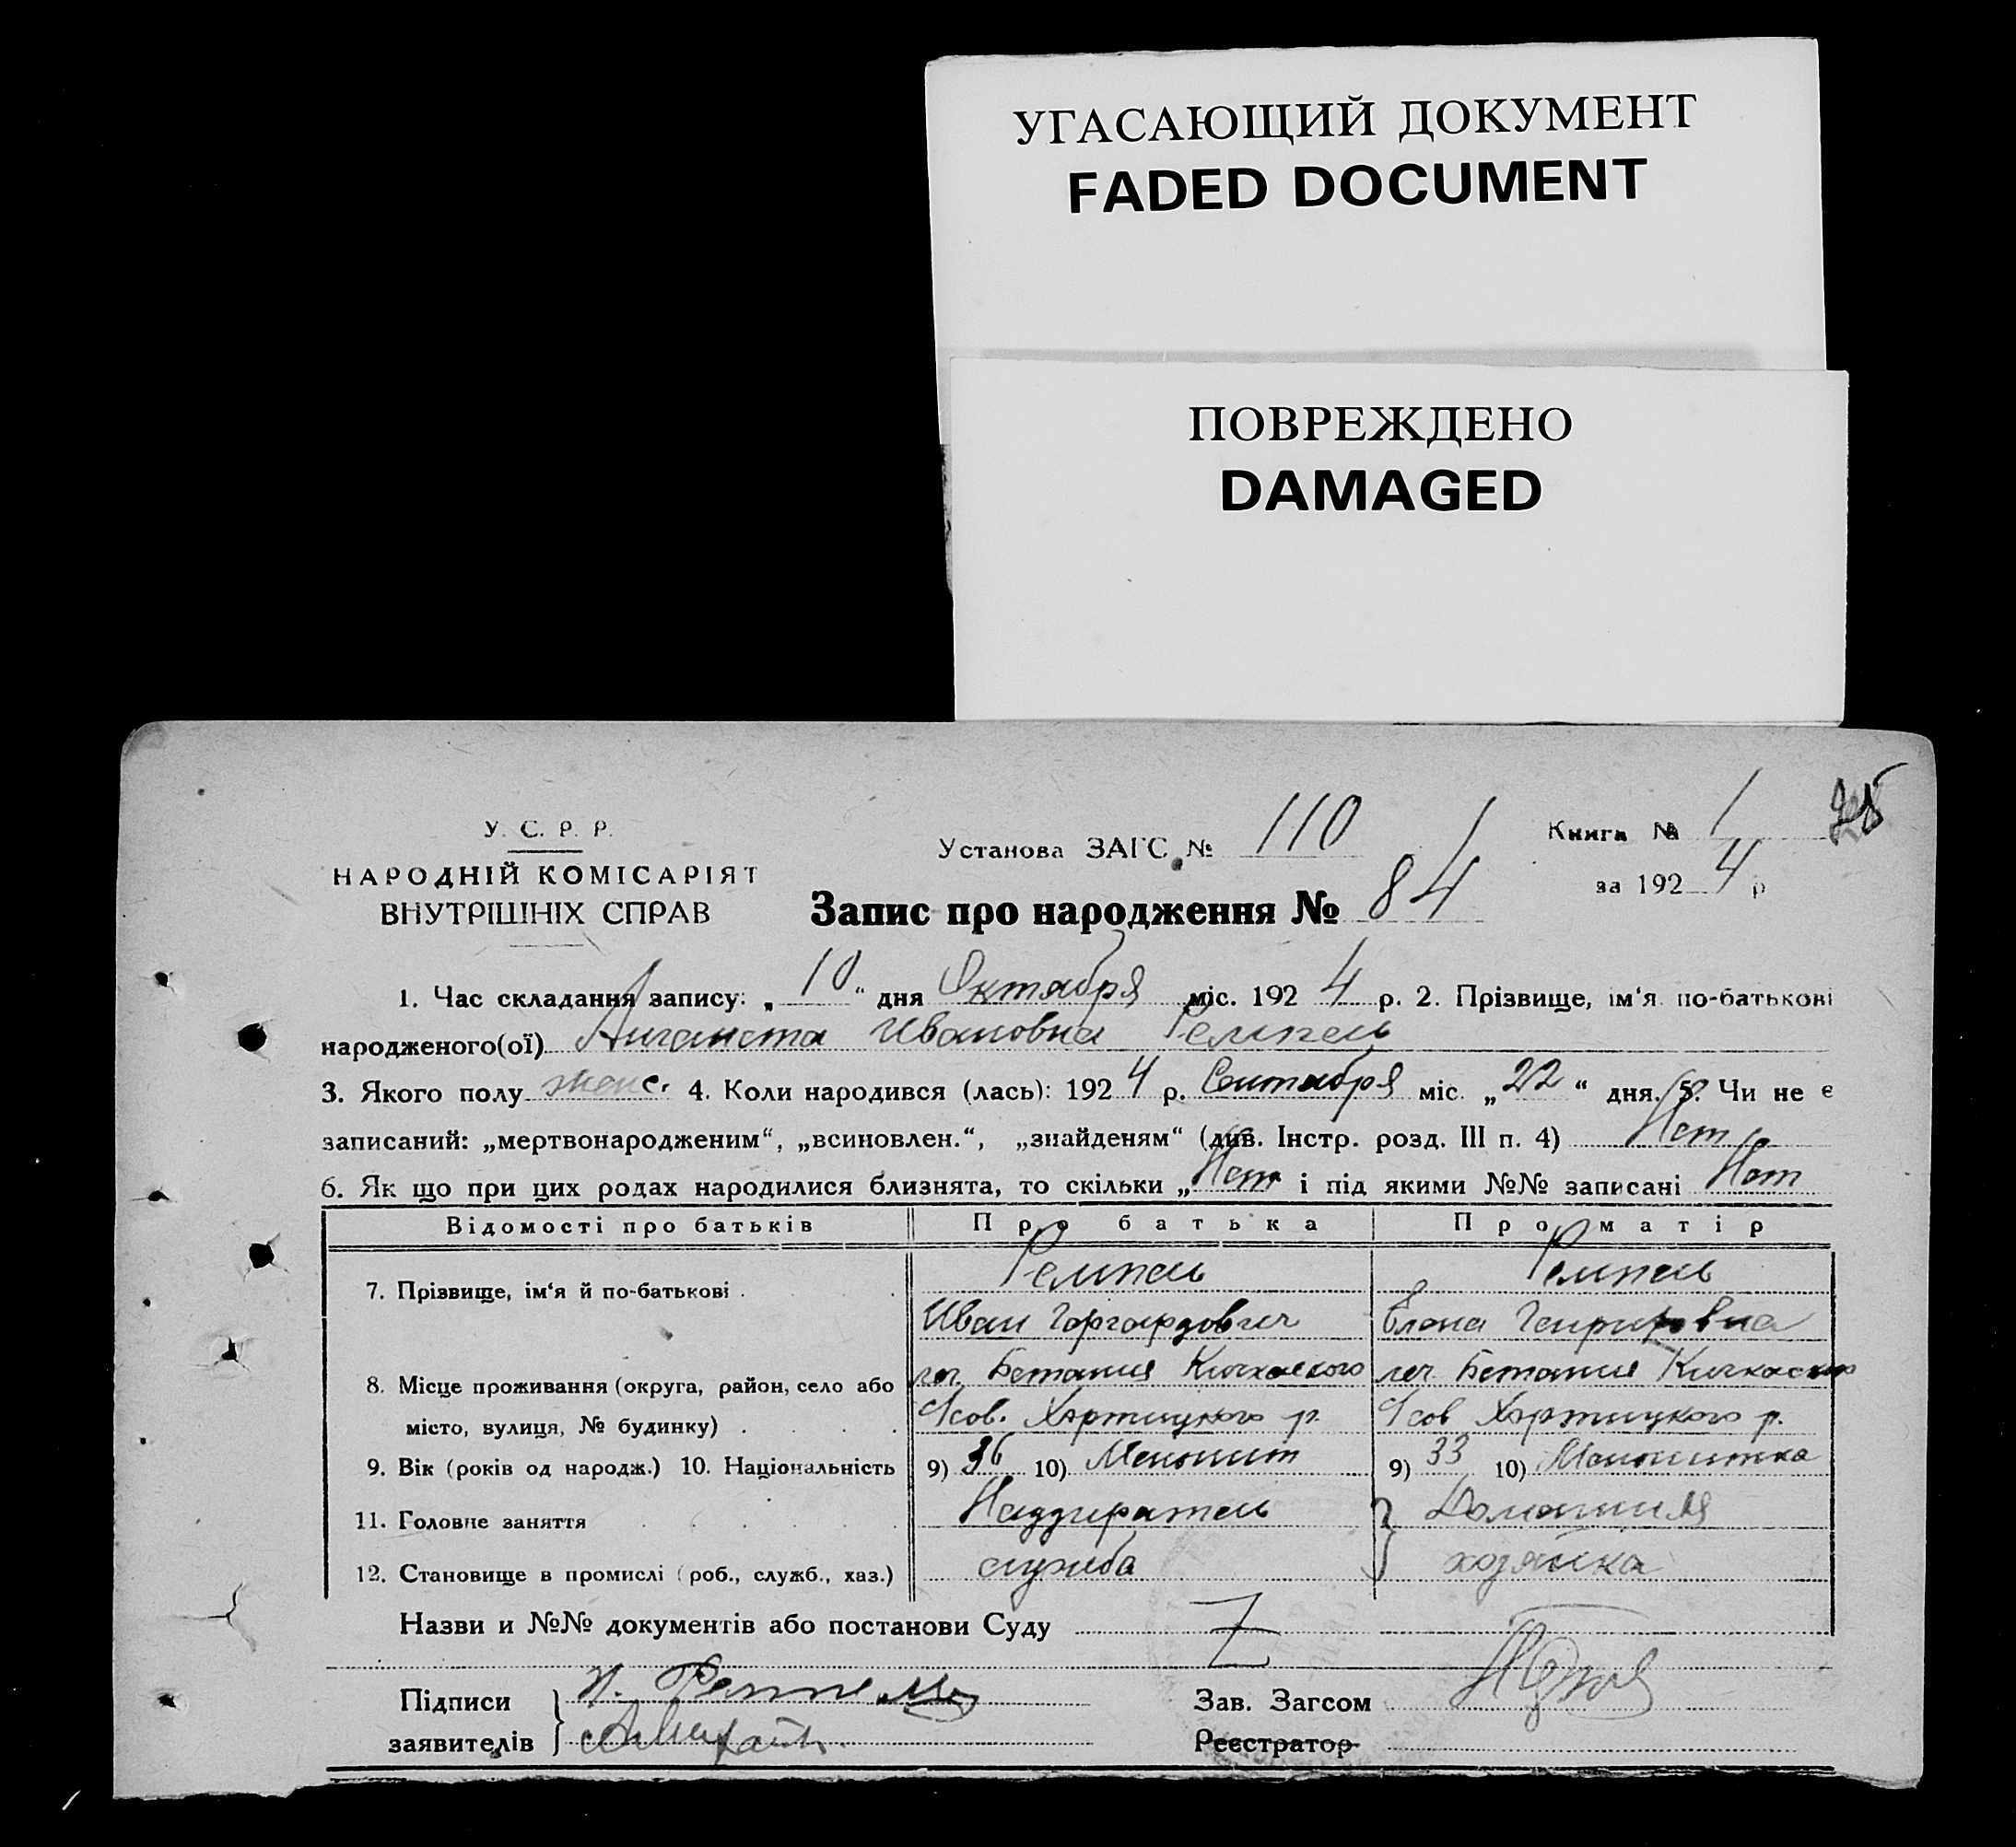 УГАСАЮЩИЙ ДОКУМЕНТ
FADED DOCUMENT
ПОВРЕЖДЕНО
DAMAGED
У. С. Р. Р.
НАРОДНІЙ КОМІСАРІЯТ
ВНУТРІШНІХ СПРАВ
Установа ЗАГС № 110
Книга № 1
за 1924 р
Запис про народження № 84
1. Час складання запису: „10“ дня Октября міс. 1924 р. 2. Прізвище, ім‘я по-батькові
народженого(ої) Ивановна Ремпель
3. Якого полу женс. 4. Коли народився (лась): 1924 р. Сентября міс. „22“ дня. 5. Чи не є
записаний: „мертвонародженим“, „всиновлен.“, „знайденям“ (див. Інстр. розд. III п. 4) Нет
6. Як що при цих родах народилися близнята, то скільки „Нет і під якими №№ записані Нет
Відомості про батьків Про батька Про матір
7. Прізвище, ім‘я й по-батькові . Ремпель Ремпель
Иван Елена
8. Місце проживання (округа, район, село або Бетания Кичкаского Бетания Кичкаского
місто, вулиця, № будинку) . Хортицкого р. Хортицкого р.
9. Вік (років од народж.) 10. Національність 9) 36 10) Менонит 9) 33 10) Менонитка
11. Головне заняття Надзиратель Домашняя
12. Становище в промислі (роб., служб., хаз.) служба хозяйка
Назви и №№ документів або постанови Суду Z
Підписи
заявителів
Зав. Загсом
Реєстратор